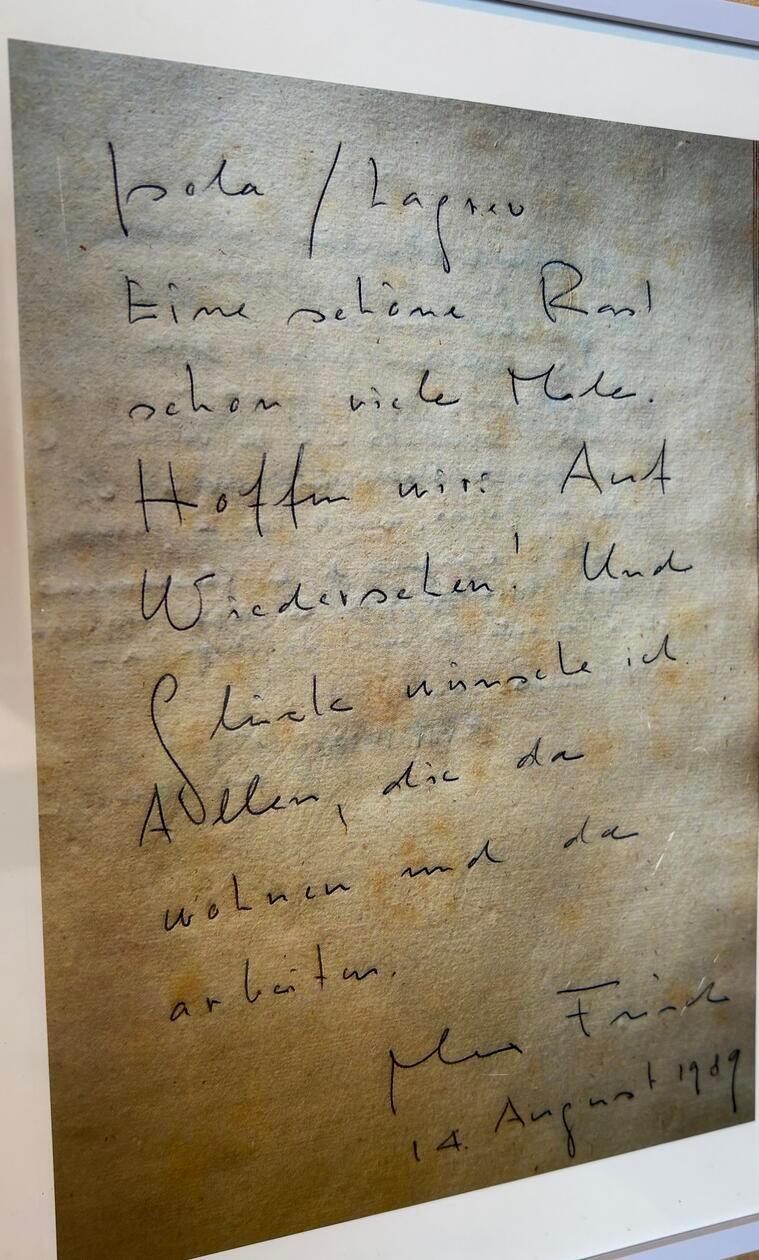 Isola / Lagrev
Eine schöne Rast
schon viele Male.
Hoffen wir: Auf
Wiedersehen! Und
Glück wünsche ich
Allen, die da
wohnen und da
arbeiten.
Max Frisch
14. August 1989